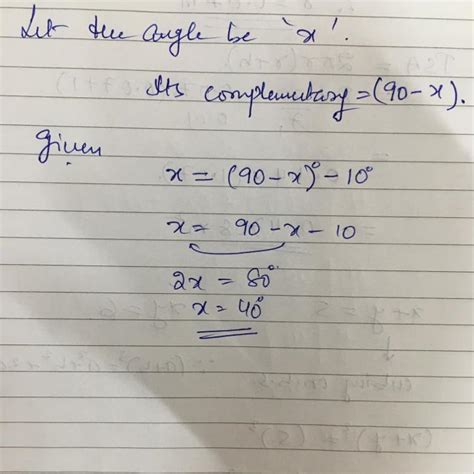 Let the angle be 'x'.
Its complementary = (90 - x).
Given
x = (90 - x)° - 10°
x = 90 - x - 10
2x = 80°
x = 40°
x + y = 5